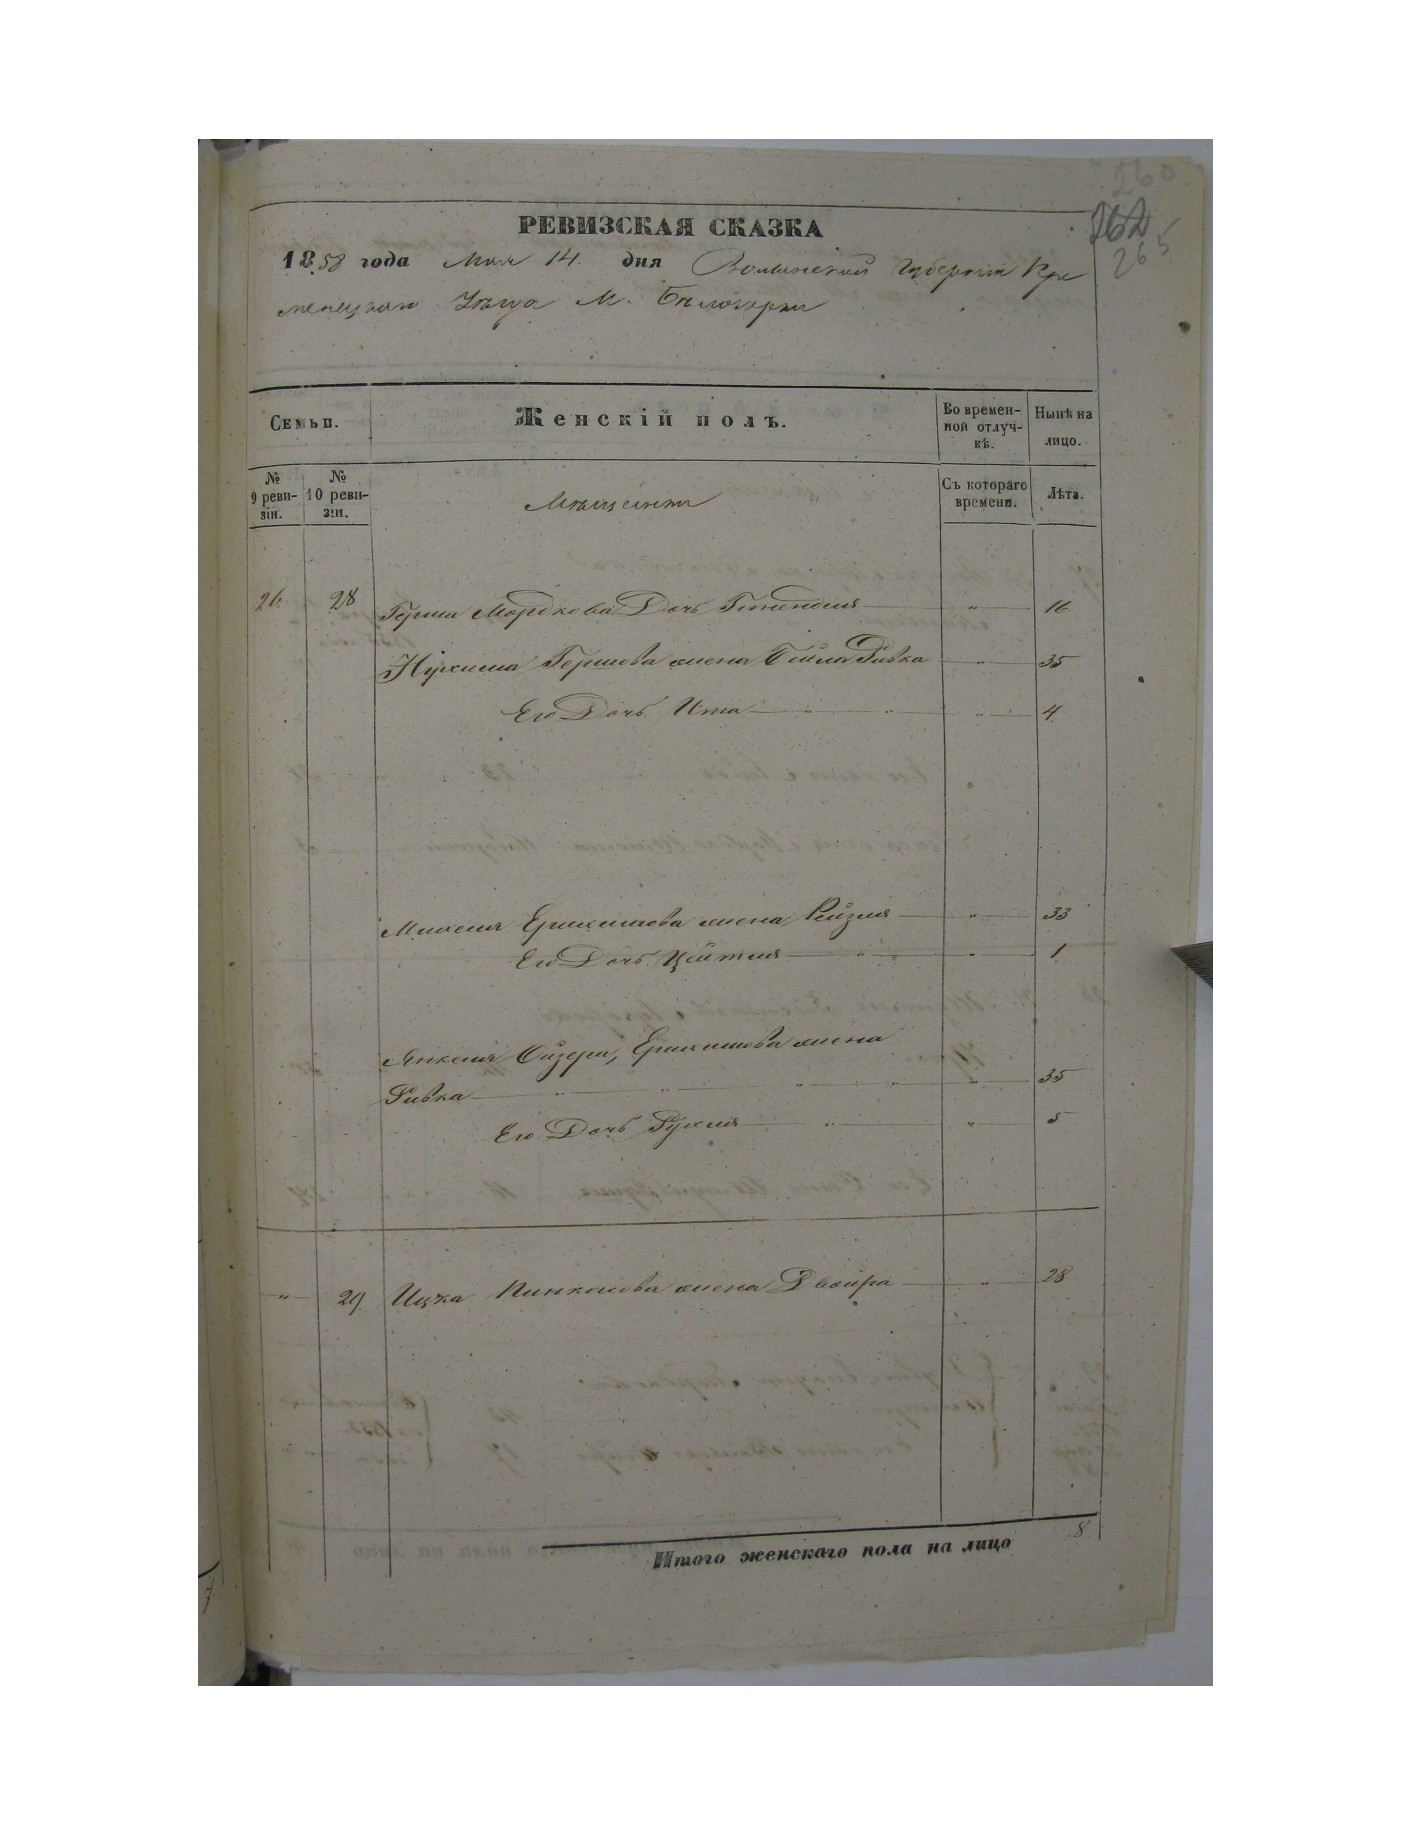 260
262
265
РЕВИЗСКАЯ СКАЗКА
1858 года Мая 14. дня Волынской Губерніи Кре
менецкаго Уѣзда М. Бѣлозерки
Семьи.
Женскій полъ.
Во времен-
ной отлуч-
кѣ.
Нынѣ на
лицо.
№
9 реви-
зіи.
№
10 реви-
зіи.
Мѣщане
Съ котораго
времени.
Лѣта.
26. 28 Герша Мордкова Дочь " 16
Нухима Гершова жена Бейла Ривка " 35
Его Дочь Ита " " " 4
жена Рейзля " 33
Его Дочь Цейтля " " 1
Янкеля жена
Ривка " " " " " 35
Его Дочь Рухля " " 5
" 29. Ицка Пинкасова жена Двойра " 28
Итого женскаго пола на лицо 8.
7.